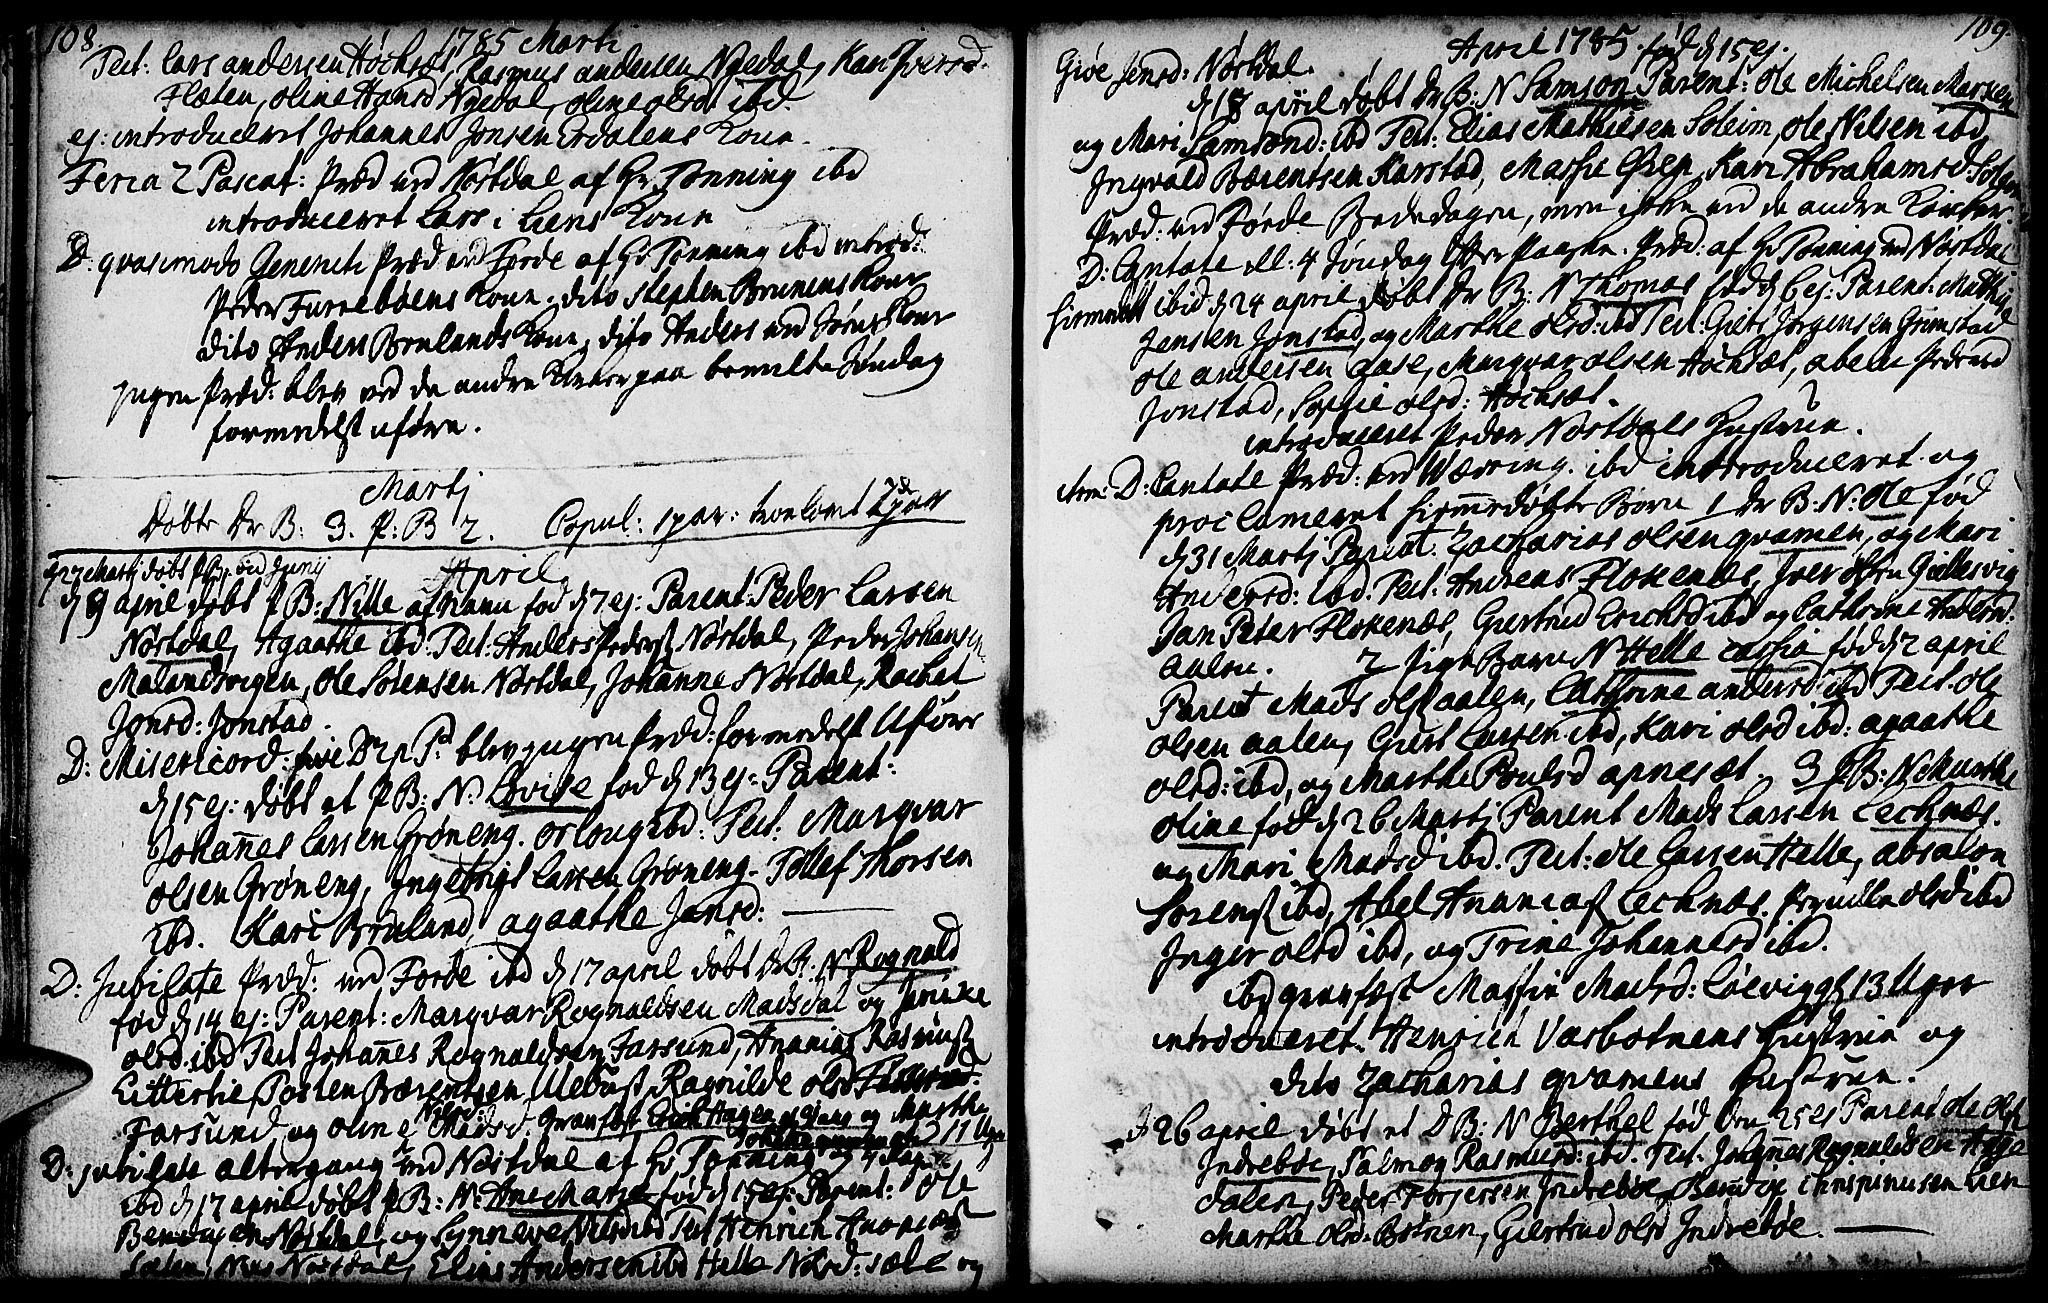 108.
1785 Marti
Test: Lars andersen Høchsæt, Rasmus andersen Nÿedal, Kari Iversd:
Flæten, Oline Hansd Nÿedal, Oline olsd ibd.
ej: introduceret Johannes Jonsen Erdalens Kone.
Feria 2 Pascat: Præd ved Nørdal af Hr Tønning ibd
introduceret Lars i Liens Kone
D: qvasimodo Geneniti Præd ved Førde af Hr Tønning ibd introd:
Peder Furrebøens Kone, dito Stephen Brunens Kone
dito Anders Brulands Kone, dito Anders ved Kone
Ingen Præd: blev ved de andre Kirker paa bemelte Søndag
formedelst uføre.
Martj
Døbte Dr B: 3. P: B 2. Copul: 1 par: trolovet 2 par
27 Martj døbt
April
d 9 april døbt P B: Nille af Navn fød d 7 ej: Parent: Peder Larsen
Nørdal, Agaathe ibd: Test: Anders Peders Nørdal, Peder Johansen
Malandsvigen, Ole Sørensen Nørdal, Johanne Nørdal, Rachel
Jonsd: Jonstad.
D: Misericord: blev Ingen Præd: formedelst Uføre
d 15 ej: døbt et P B: N: Lovise fød d 13 ej: Parent:
Johañes Larsen Grøneng. ibd: Test: Marqvar
olsen Grøneng, Ingebrigt Larsen Grøneng. Tollef Thorsen
ibd. Kari Bruland, agaathe Jansd:
D: Jubilate Præd: ved Førde ibd d 17 april døbt Dr B: N Rognald
fød d 14 ej: Parent: Marqvar Rognaldsen Madsdal og
olsd: ibd Test Johañes Rognaldsen Farsund, Ananias Rasmus
Bærentsen Ragnilde olsd
Farsund, og Oline Madsd. Erich Hagen og Marthe
D: jubilate altergang ved Nørdal af Hr Tønning
ibd d 17 april døbt P B: N: Ane Marie fød d 15 ej: Parent: Ole
Nørdal, og Synneve Nilsd ibd Test Henrich
Nørdal, Elias Andersen ibd Helle Nilsd: sæle og
109.
April 1785. fød d 15 ej.
Giøe Jensd: Nørdal.
d 18 april døbt Dr B: N Samson Parent: Ole Michelsen Marken
og Mari Samsond: ibd Test: Elias Mathiesen Soleim, Ole Nilsen ibd,
Ingvald Bærentsen Karstad, Massie Øren, Kari Abrahamsd:
Præd: ved Førde Bededagen, men ikke ved de andre Kirker.
D: Cantate ell: 4 Søndag Efter Paaske. Præd: af Hr Tønning ved Nørdal
ibid d 24 april døbt Dr B: N Thomas fød d 6 ej: Parent: Mathis
Jensen Jonstad, og Marthe olsd: ibd Test: Giert Jørgensen Grimstad
Ole andersen Aase, Marqvar olsen Høchsæt, abelu Pedersd
Jonstad, Sophie olsd: Høchsæt.
introduceret Peder Nørdals Hustrue.
D: Cantate Præd: ved Wævring. ibd introduceret og
proclameret hiemmedøbte Børn 1 Dr B: N: Ole fød
d 31 Martj Parent. Zacharias olsen qvamen, og Mari
Andersd: ibd. Test: Andreas Flokenæs, Iver olsen Giellesvig
Jan Peter Flokenæs, Giertrud Erichsd ibd og Cathrine Andersd:
aalen. 2 Pige Barn N Helle Cassia fød d 2 april
Parent Mads ols aalen, Cathrine andersd ibd Test: Ole
olsen aalen, Giert Larsen ibd, Kari olsd ibd: agaathe
olsd: ibd, og Marthe Poulsd apnesæt. 3 P B: N Marthe
Oline fød d 26 Martj Parent Mads Larsen Lechnæs.
og Mari Madsd ibd. Test: Ole Larsen Helle, absalon
Sørens ibd, Abel Ananiaß Lechnæs. Pernille olsd ibd
Inger olsd ibd, og Trine Johannesd ibd.
ibd gravfæst Maffin Madsd: 13 Uger
introduceret. Henrich Vasbotnens Hustrue og
dito Zacharias qvamens Hustrue.
d 26 april døbt et D B: N Berthel fød den 25 ej Parent Ole ols
Indrebøe, Salmøg Rasmusd: ibd. Test: Johañes Rognaldsen
dalen, Peder Torjersen Indrebøe, Chrispinusen Lien
Marthe olsd: Botnen, Giertrud olsd Indrebøe.